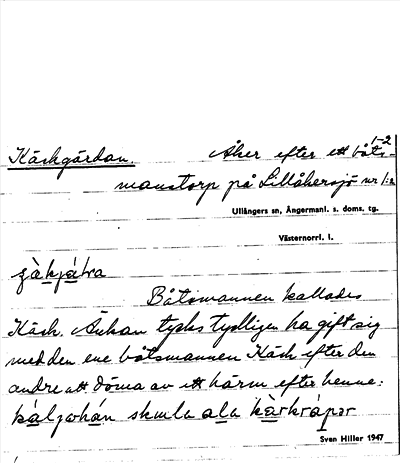 1-2
Käskgårdan. Åker efter ett båts-
manstorp på Lillåkersjö nr 1:2
Ullångers sn, Ångermanl. s. doms. tg.
Västernorrl. l.
Båtsmannen kallades
Käsk. Änkan tycks tydligen ha gift sig
med den ene båtsmannen Käsk efter den
andre att döma av ett härm efter henne:
skula ala
Sven Hiller 1947